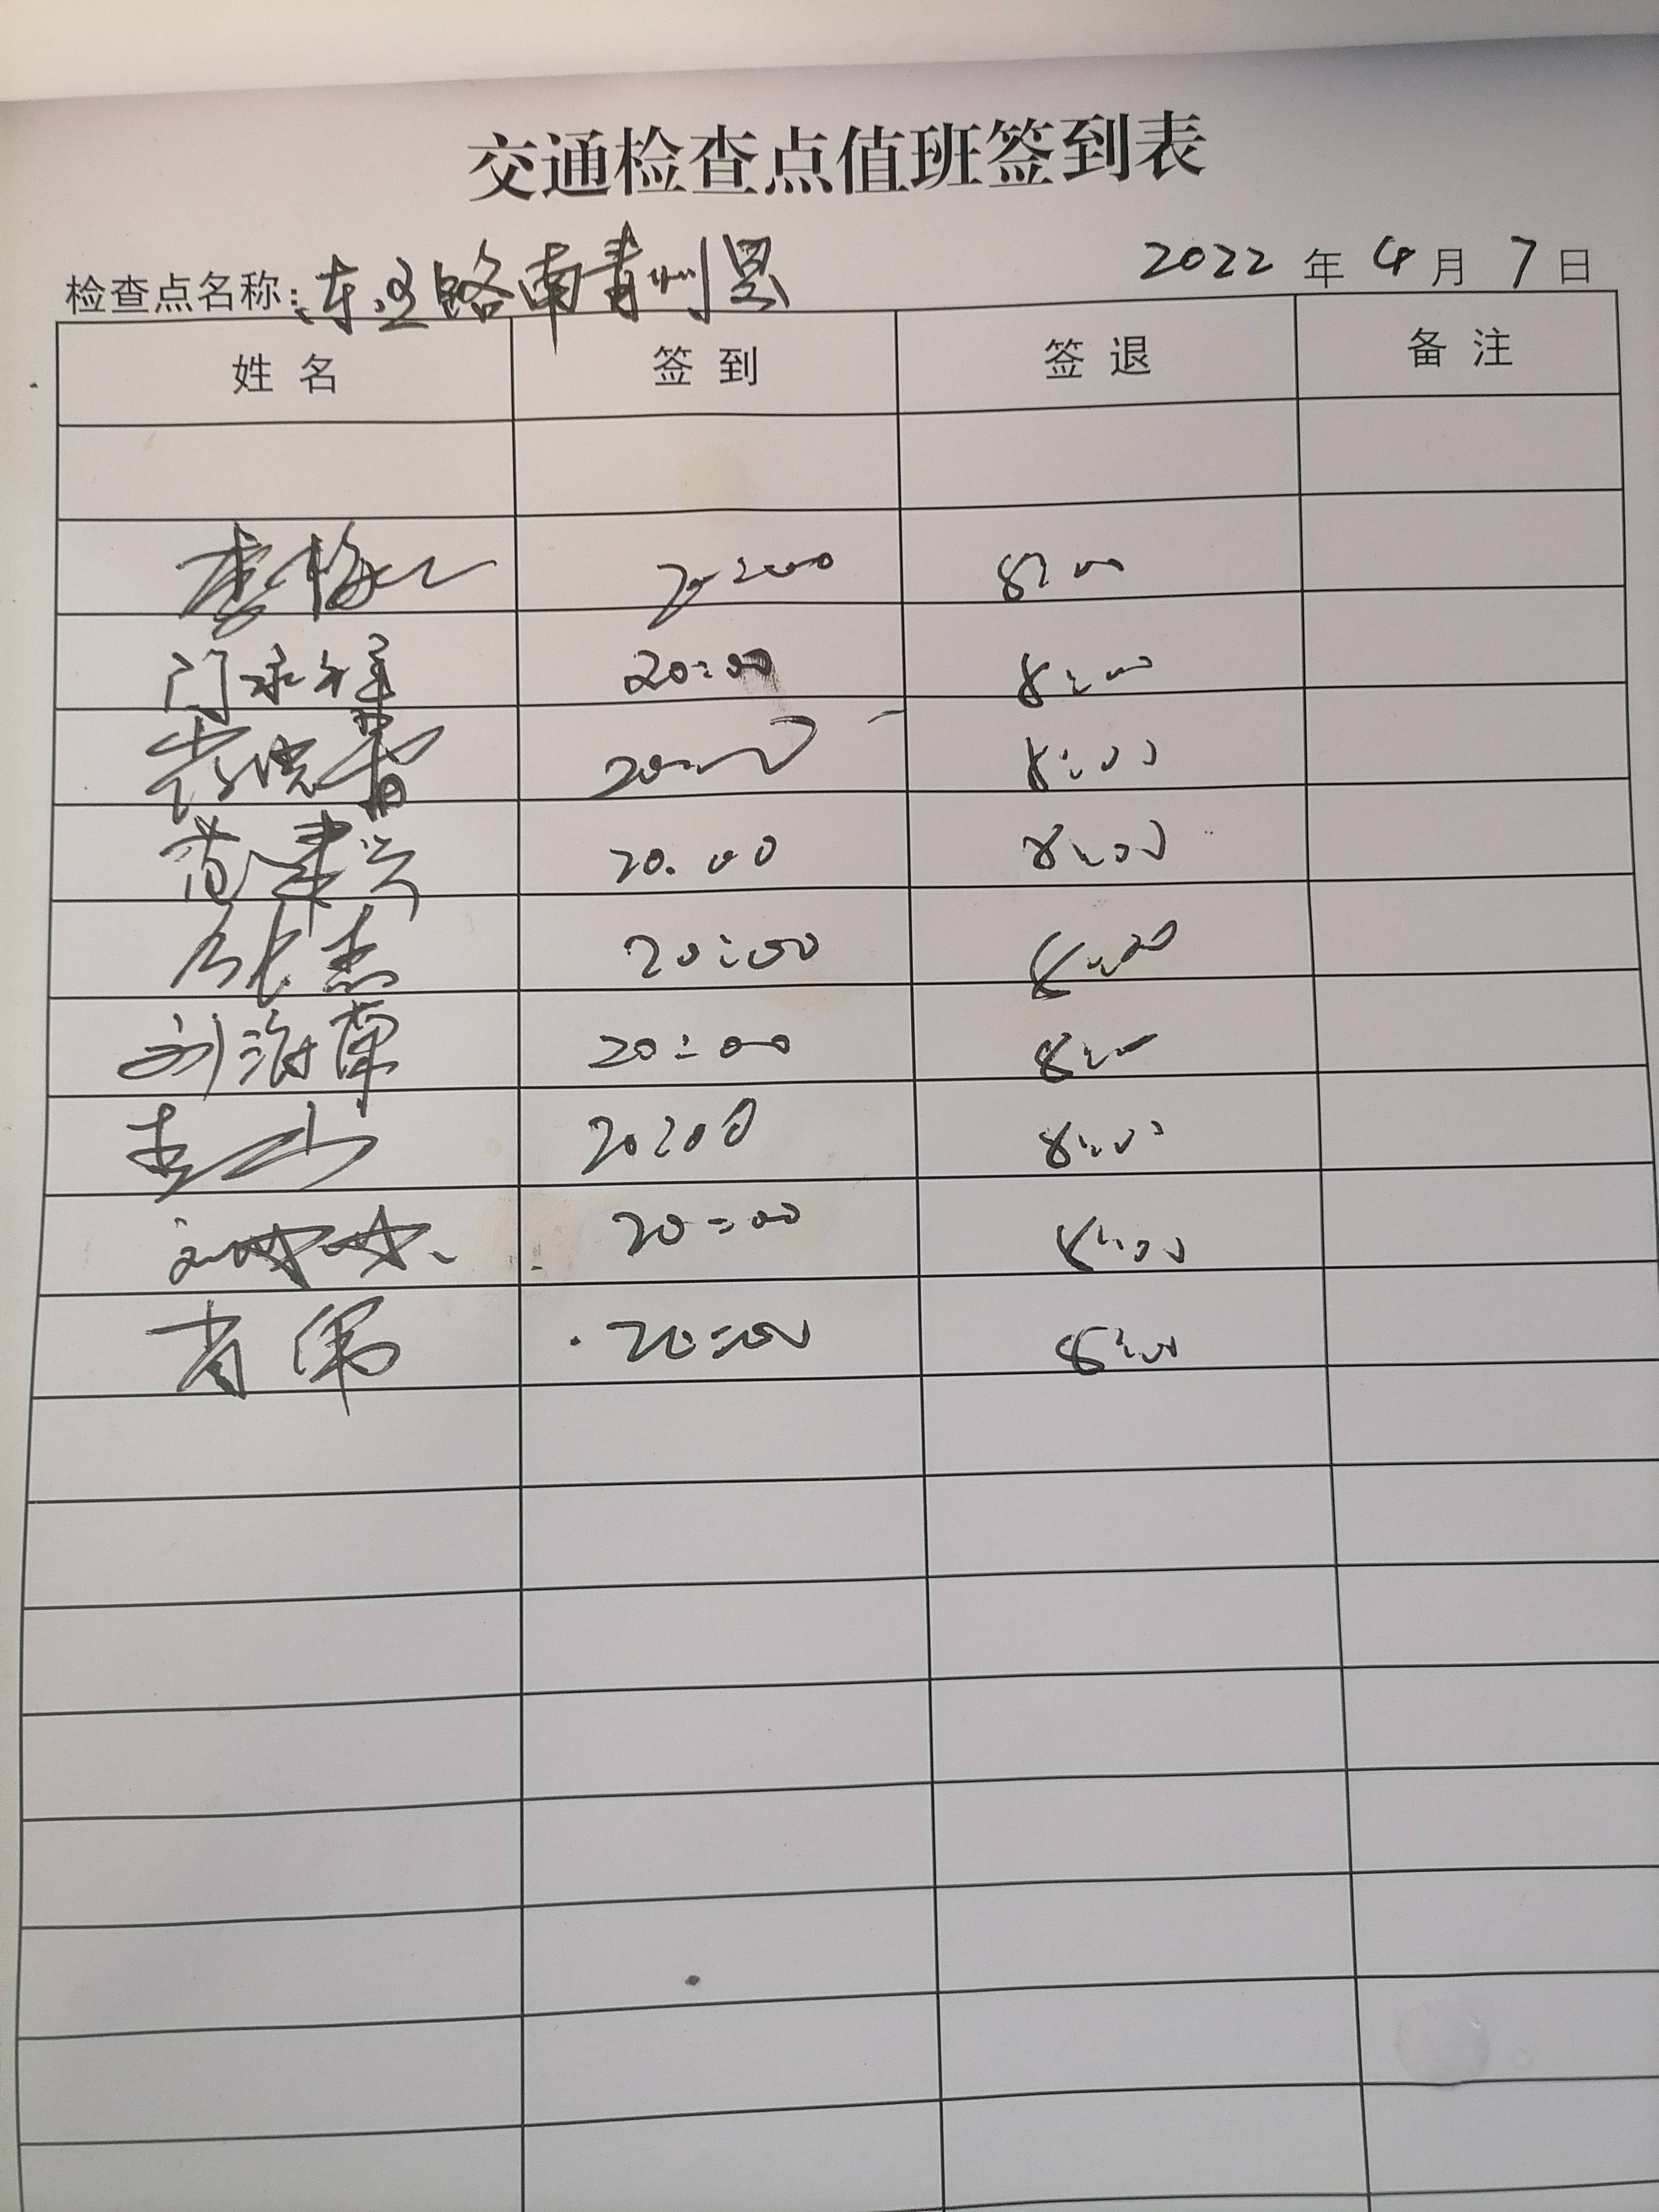 交通检查点值班签到表
检查点名称: 路南青州界 2022 年 4 月 7 日
姓名 签到 签退 备注
李梅 20:00 8:00
门永祥 20:00 8:00
20:00 8:00
范建兴 20.00 8:00
张杰 20:00 8:00
刘海荣 20:00 8:00
20:00 8:00
20:00 8:00
肖伟 20:00 8:00